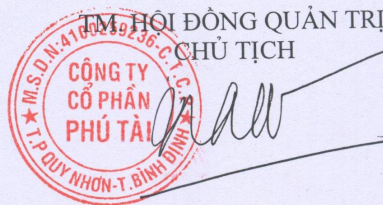 TM. HỘI ĐỒNG QUẢN TRỊ
CHỦ TỊCH
M.S.D.N:4100259236-C.T.C.P
CÔNG TY
CỔ PHẦN
PHÚ TÀI
T.P QUY NHƠN-T.BÌNH ĐỊNH